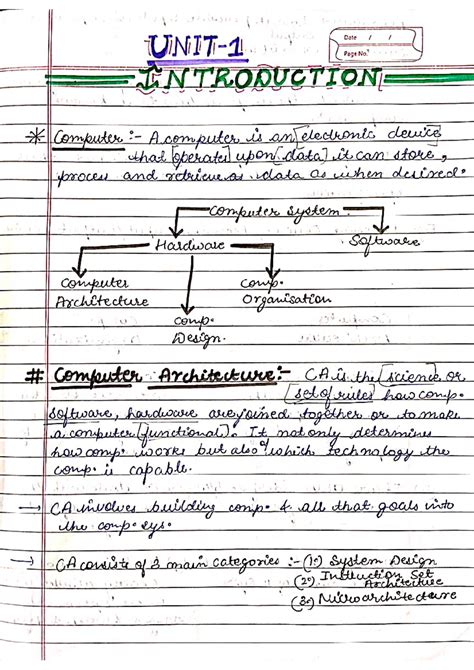 UNIT-1
Date / /
Page No.
INTRODUCTION
* Computer :- A computer is an electronic device
that operates upon data, it can store,
process and retrieve as data as when desired.
Computer System
Hardware
Software
Computer
Architecture
comp.
Organisation
comp.
Design.
# Computer Architecture:- CA is the science or
set of rules how comp.
software, hardware are joined together or to make
a computer functional. It not only determines
how comp. works but also of which technology the
comp. is capable.
→ CA involves building comp. & all that goals into
the comp. sys.
→ CA consists of 3 main categories :- (1.) System Design
(2.) Instruction Set
Architecture
(3.) Microarchitecture